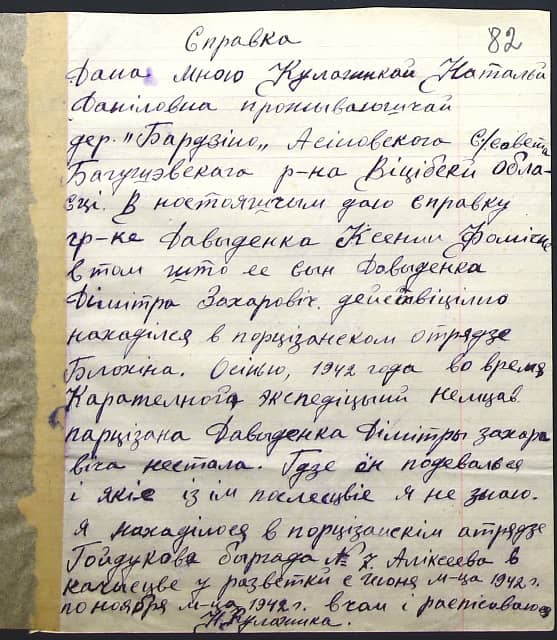 82
Справка
Дана мною Кулагинкай Натальи
Даніловна проживающчай
дер. "Бардзіно" Асіновского С/совета
Багушэвскага р-на Віцібскй обла-
сці. В ностоящчым даю справку
гр-ке Давыденка Ксении Фомічне
в том што ее сын Давыденка
Дімітра Захаровіч. действіцілно
находілся в порцізанском отрядзе
Блохіна. Осінью, 1942 года во время
Карателного экспедіцый немцав
парцізана Давыденка Дімітры захара
віча нестала. Гдзе ён подевалься
і якіе із ім послесцвіе я не знаю.
Я находілося в порцізанскім атрядзе
Гойдукова быргада № 7. Аліксеева в
качэсцве у разветки с июня м-ца 1942 г.
по ноября м-ца 1942 г. в чом і распісываюсь
Н. Кулагинка.